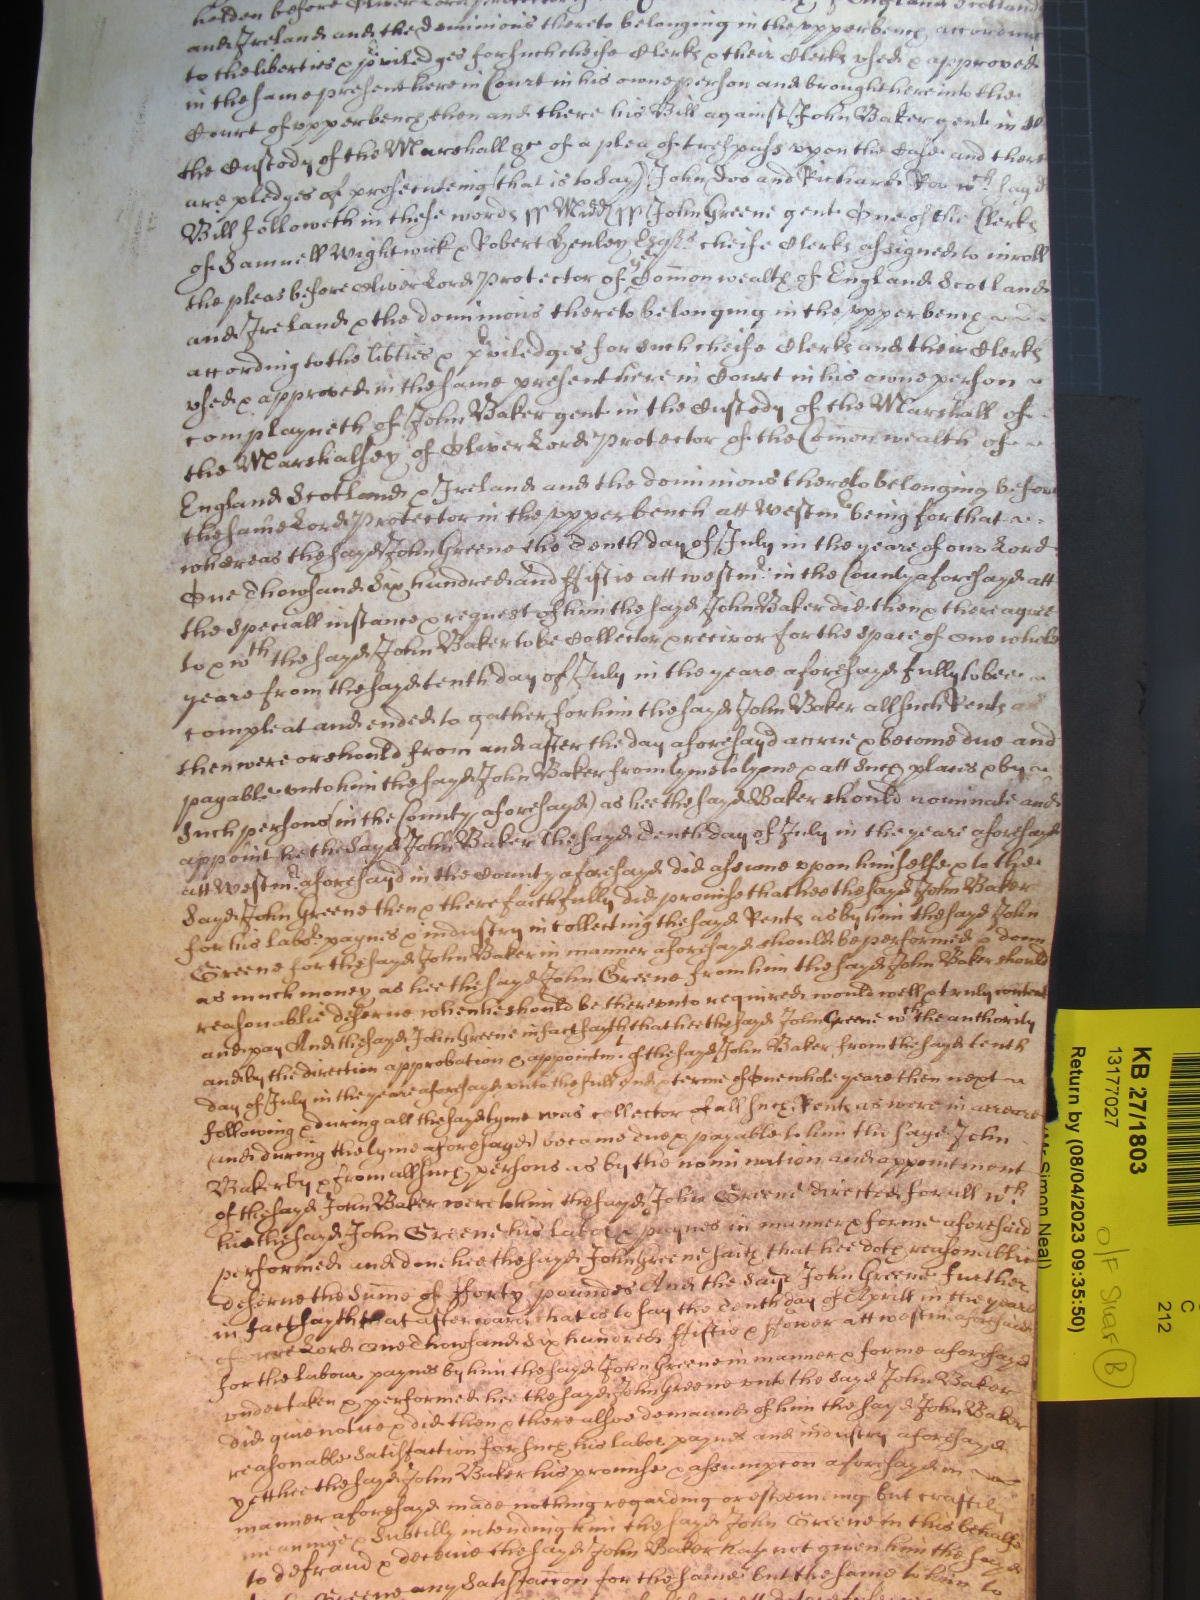 holden before Oliver Lord Protector of England Scotland
and Ireland and the Dominions thereto belonging in the upper bench according
to the liberties & priviledges for such cheife Clerks & their Clerks used & approved
in the same present here in Court in his owne person and brought here into the
Court of upper bench then and there his Bill against John Baker gent in
the Custody of the Marshall &c of a plea of trespass upon the Case and there
are pledges of prosecuteing (that is to say) John Doo and Richard Roo wch sayd
Bill followeth in these words ss Midd ss John Greene gent One of the Clerks
of Samuell Wightwick & Robert Henley Esqrs cheife Clerks assigned to inroll
the pleas before Oliver Lord Protector of ye Comon wealth of England Scotland
and Ireland & the dominions thereto belonging in the upper bench
according to the libties & priviledges for such cheife Clerks and their Clerks
used & approved in the same present here in Court in his owne person
complayneth of John Baker gent in the Custody of the Marshall of
the Marshalsey of Oliver Lord Protector of the Comon wealth of
England Scotland & Ireland and the dominions thereto belonging before
the same Lord Protector in the upper bench att Westmr being for that
whereas the sayd John Greene the Tenth day of July in the yeare of our Lord
One Thowsand Six hundred and ffiftie att westmr in the County aforesayd att
the speciall instance & request of him the sayd John Baker did then & there agree
to & wth the sayd John Baker to be Collector & receivor for the space of one whole
yeare from the sayd tenth day of July in the yeare aforesayd fully to bee
compleat and ended to gather for him the sayd John Baker all such Rents as
then were or should from and after the day aforesayd accrue & become due and
payable unto him the sayd John Baker from tyme to tyme & att such places & by
such persons (in the County aforesayd) as hee the sayd Baker should nominate and
appoint hee the Sayd John Baker the sayd Tenth day of July in the yeare aforesayd
att Westmr aforesayd in the County aforesayd did assume upon himselfe & to the
Sayd John Greene then & there faithfully did promise that hee the sayd John Baker
for his labor paynes & industry in collecting the sayd Rents as by him the sayd John
Greene for the sayd John Baker in manner aforesayd should be performed & donn
as much money as hee the sayd John Greene from him the sayd John Baker should
reasonablie deserve when he should be thereunto required would well & truly content
and pay And the sayd John Greene in fact sayth that hee the sayd John Greene wth the authority
and by the direction approbation & appointmt of the sayd John Baker from the sayd tenth
day of July in the yeare aforesayd unto the full end & terme of One whole yeare then next
following & during all the sayd tyme was collector of all such Rents as were in arreare
(and during the tyme aforesayd) became due & payable to him the sayd John
Baker by & from all such persons as by the nomination and appointment
of the sayd John Baker were to him the sayd John Greene directed for all wch
his the sayd John Greene his labor & paynes in manner & forme aforesaid
performed and done hee the sayd John Greene saith that hee doth reasonablie
deserve the sume of fforty poundes And the sayd John Greene further
in fact sayth that afterward that is to say the Tenth day of Aprill in the yeare
of our Lord one Thowsand Six hundred ffiftie & ffower att westmr aforesaid
for the labour paynes by him the sayd John Greene in manner & forme aforesayd
undertaken & performed hee the sayd John Greene unto the sayd John Baker
did give notice & did then & there alsoe demaund of him the sayd John Baker
reasonable Satisfaction for such his labor paynes and industry aforesayd
yett hee the sayd John Baker his promise & assumpcon aforesayd in
manner aforesayd made nothing regarding or esteeming but craftily
meaninge & Subtilly intending him the sayd John Greene in this behalfe
to defraud & deceive the sayd John Baker hath not given him the sayd
Greene any Satisfaccon for the same but the same to him to
KB 27/1803
13177027
Return by (08/04/2023 09:35:50)
Mr Simon Neal)
C
212
O/F
B